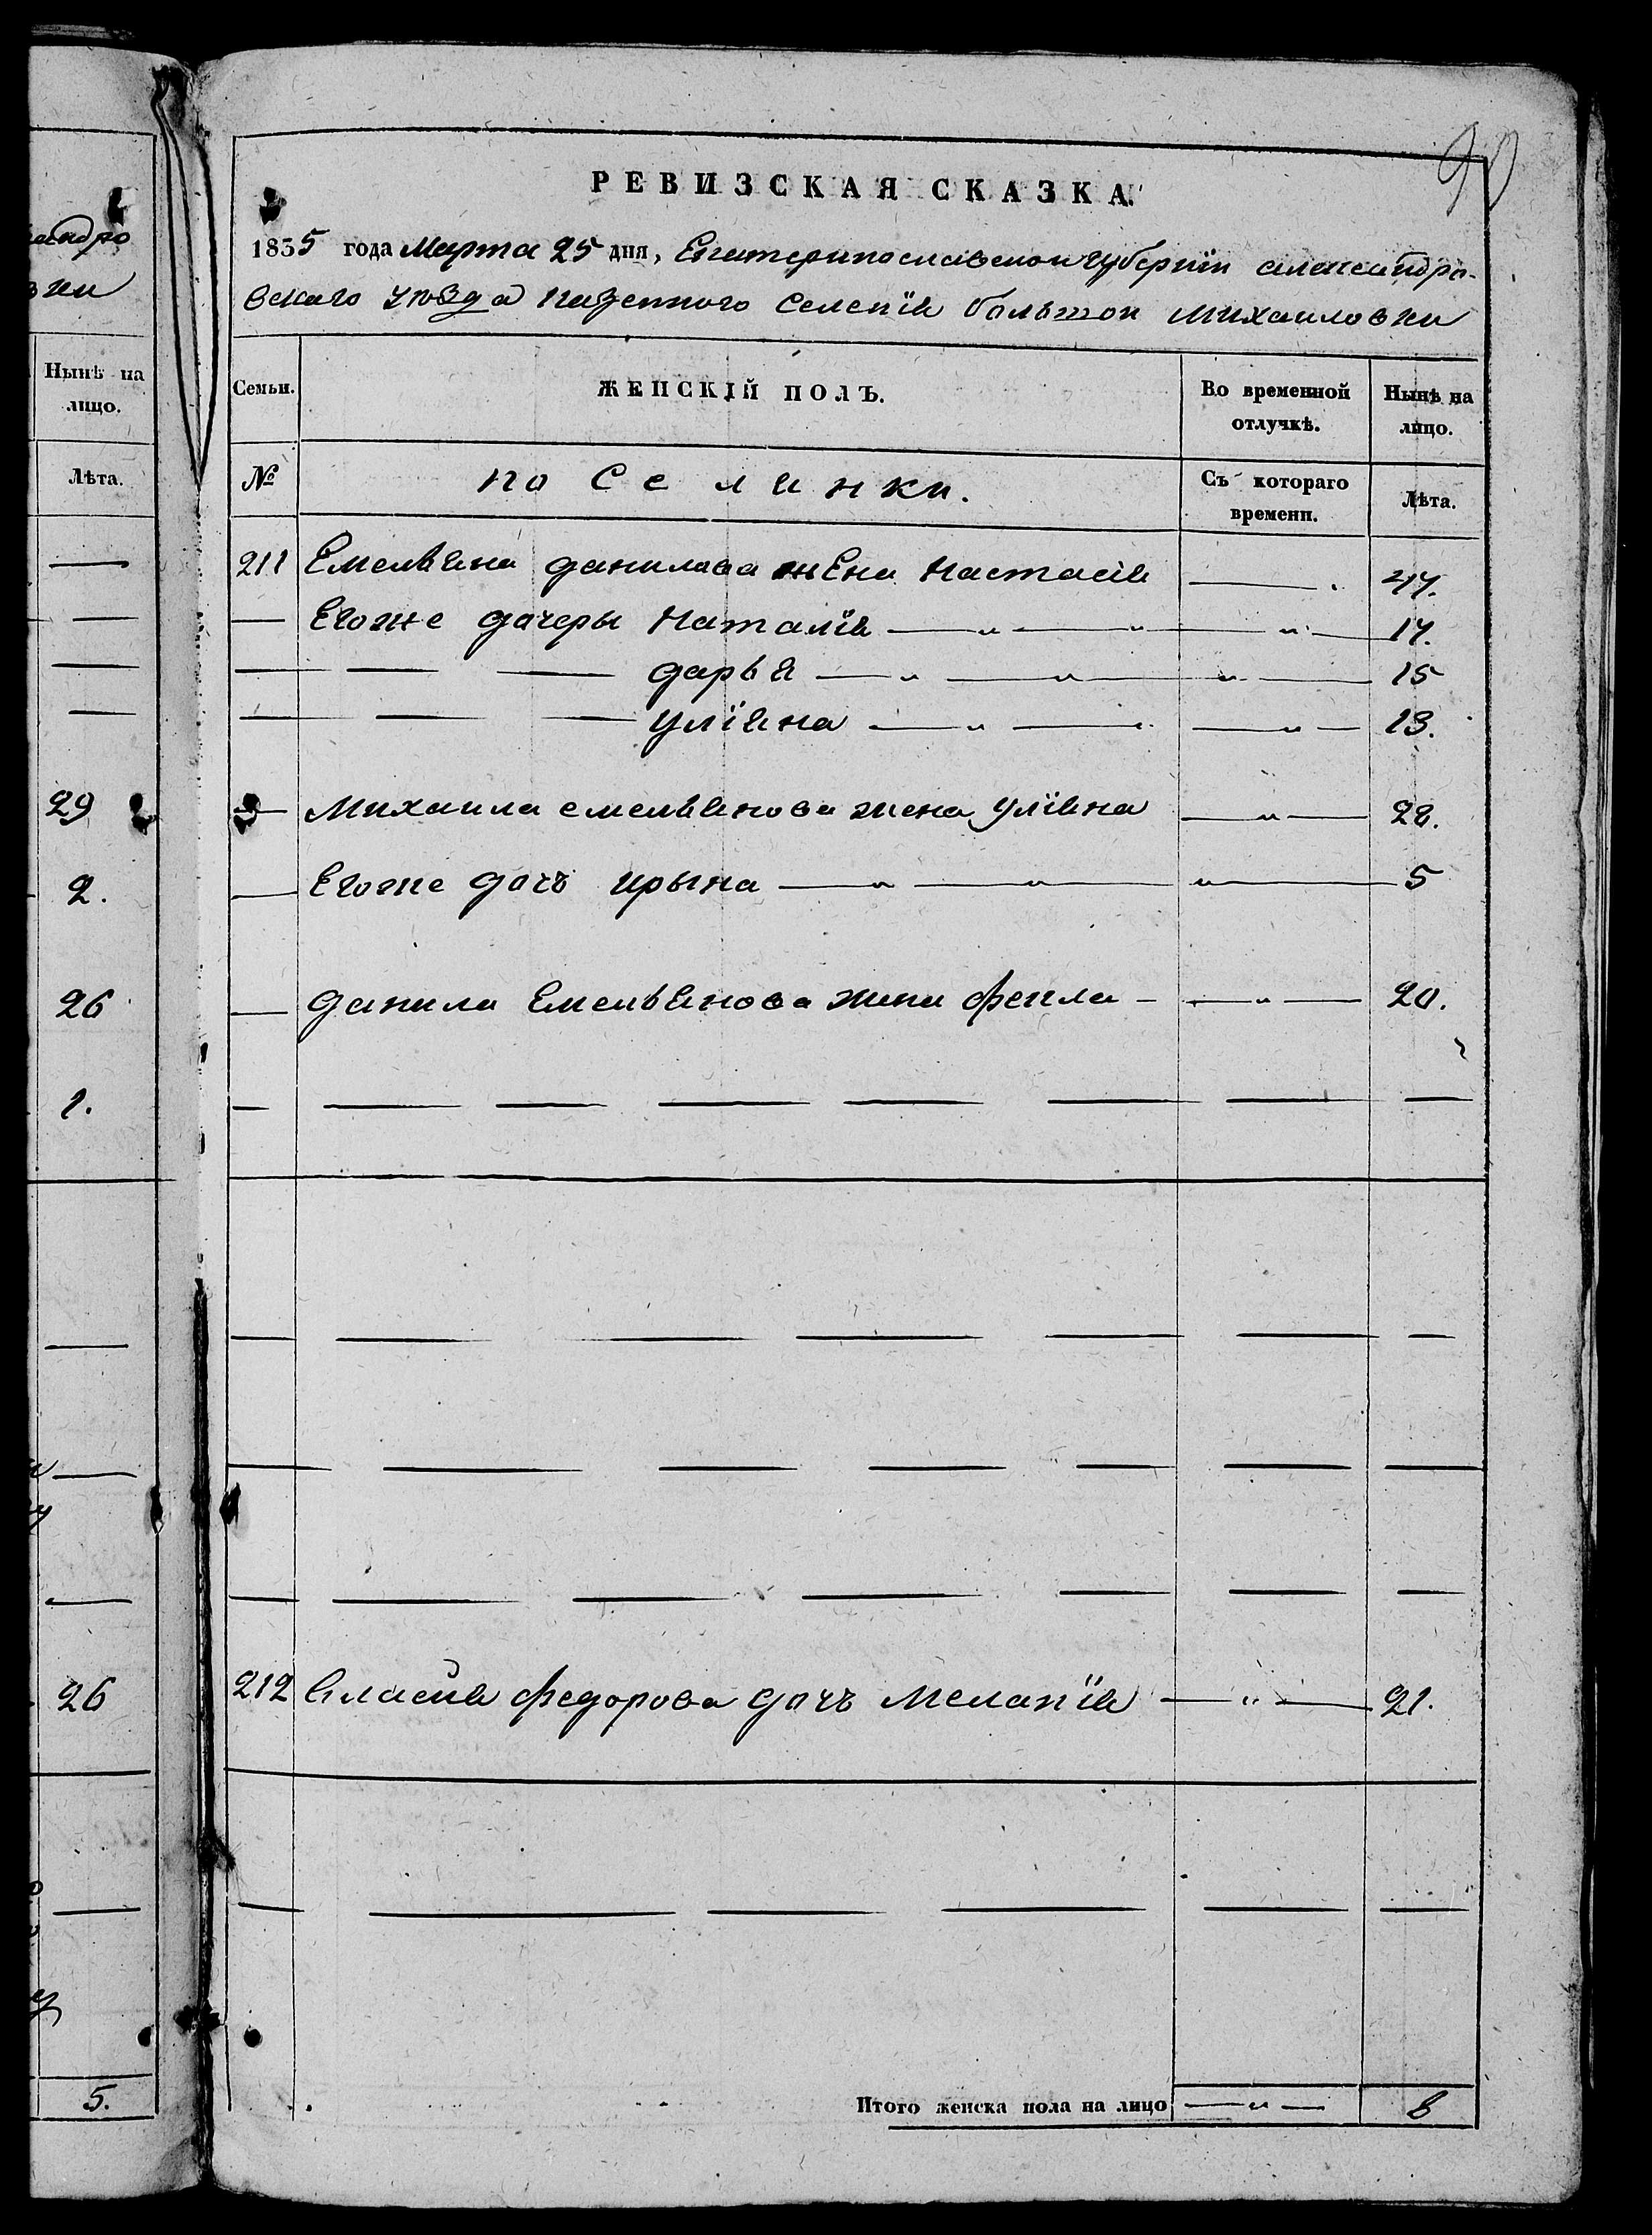 андро
вки
Нынѣ на
лицо.
Лѣта.
29
2.
26
1.
26
5.
90
РЕВИЗСКАЯ СКАЗКА.
1835 года Марта 25 дня, Екатеринославской губернїи александро-
вскаго уѣзда казенного селенїя большой михаиловки
Семьи.
ЖЕНСКІЙ ПОЛЪ.
Во временной
отлучкѣ.
Нынѣ на
лицо.
№
поселянки.
Съ котораго
времени.
Лѣта.
211 Емельяна данилова жена настасїя 47.
Егоже дочеры наталїя 17.
дарья 15
улїяна 13.
михаила емельянова жена улїяна 28.
Егоже дочъ ирына 5
данила Емельянова жена фекла 20.
212 власїя федорова дочъ меланїя 21.
Итого женска пола на лицо 8